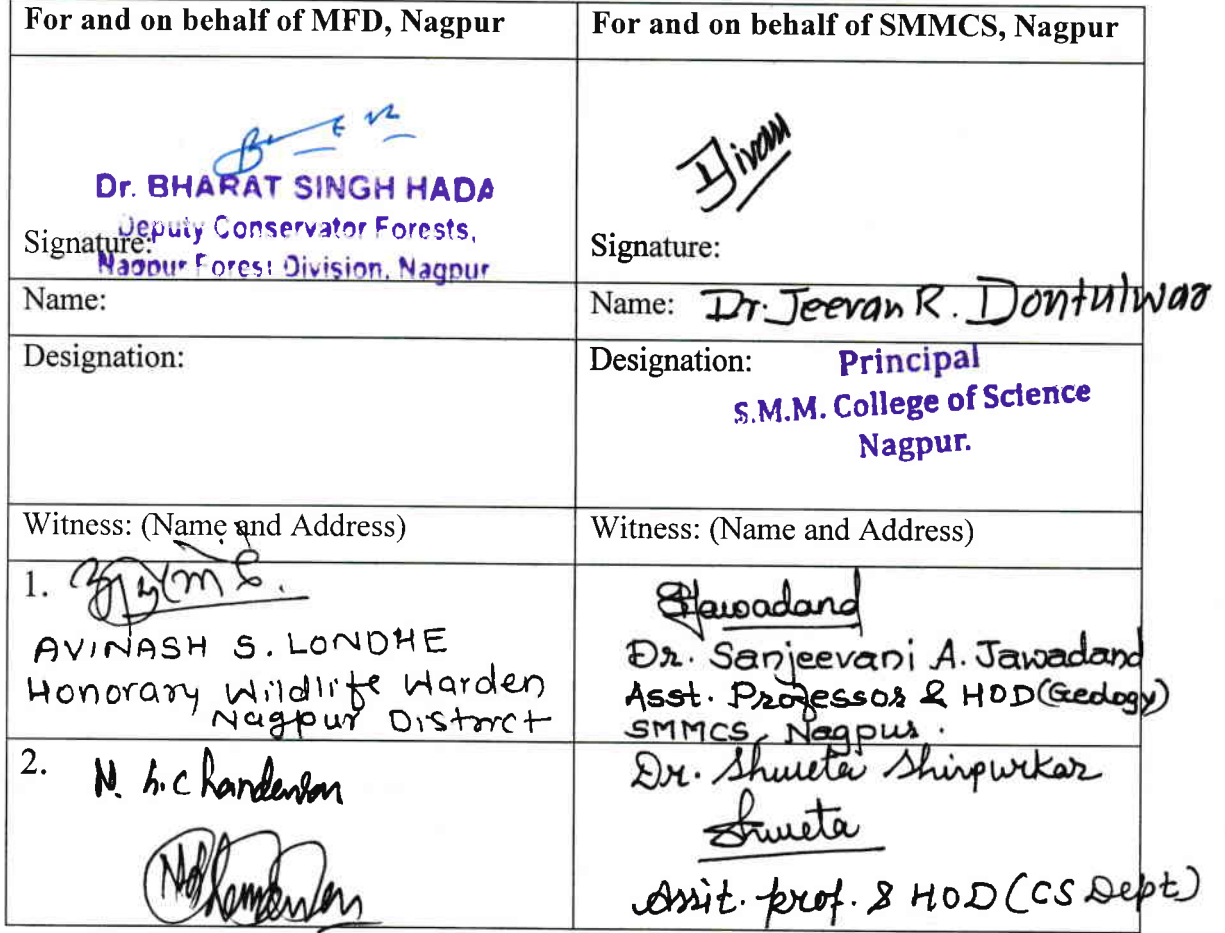 For and on behalf of MFD, Nagpur
For and on behalf of SMMCS, Nagpur
Dr. BHARAT SINGH HADA
Deputy Conservator Forests,
Signature:
Nagpur Forest Division, Nagpur
Signature:
Name:
Name: Dr. Jeevan R. Dontulwar
Designation:
Designation: Principal
S.M.M. College of Science
Nagpur.
Witness: (Name and Address)
Witness: (Name and Address)
1.
AVINASH S. LONDHE
Honorary Wildlife Warden
Nagpur District
Jawadand
Dr. Sanjeevani A. Jawadand
Asst. Professor & HOD (Geology)
SMMCS, Nagpur.
2. N. h.
Dr. Shweta Shirpurkar
Shweta
Assit. prof. & HOD (CS Dept)